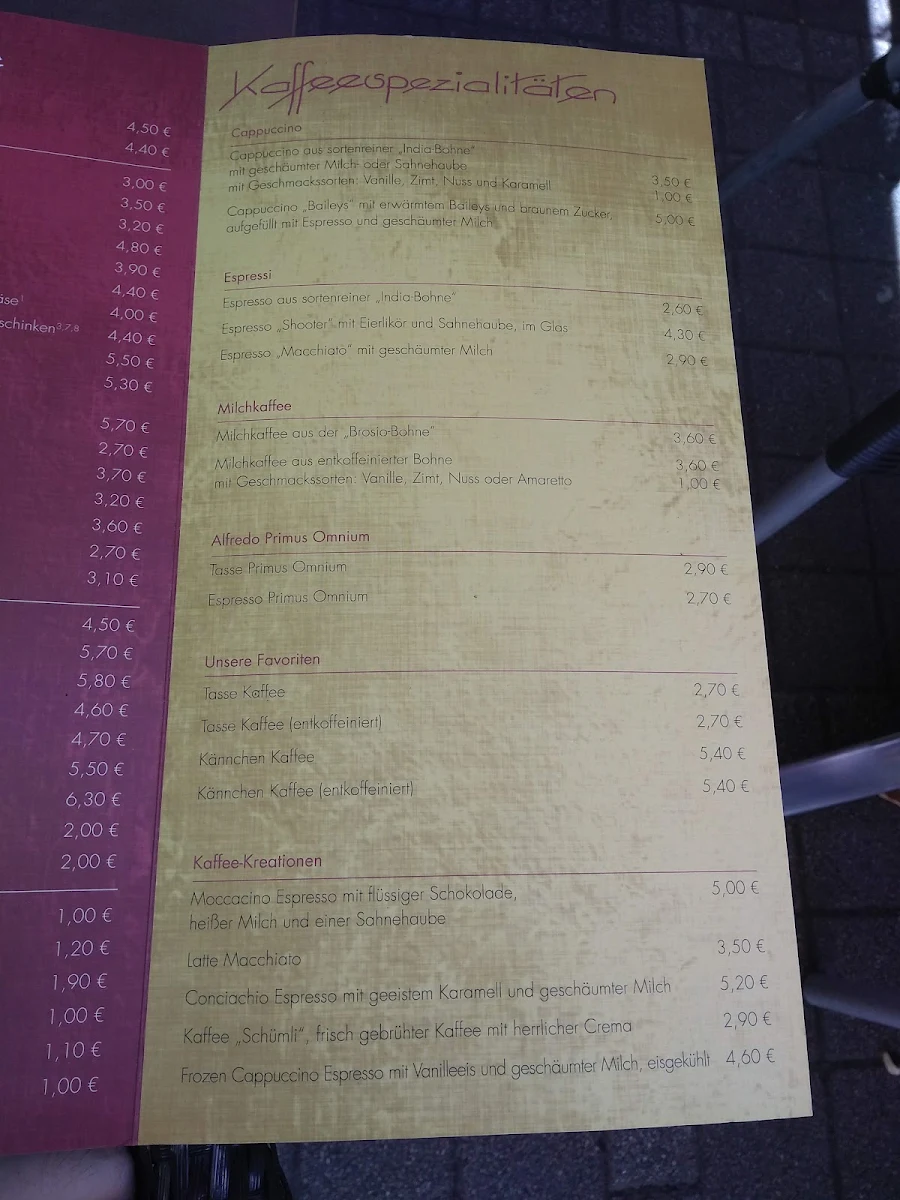 4,50 €
4,40 €
3,00 €
3,50 €
3,20 €
4,80 €
3,90 €
4,40 €
4,00 €
schinken3,7,8
4,40 €
5,50 €
5,30 €
5,70 €
2,70 €
3,70 €
3,20 €
3,60 €
2,70 €
3,10 €
4,50 €
5,70 €
5,80 €
4,60 €
4,70 €
5,50 €
6,30 €
2,00 €
2,00 €
1,00 €
1,20 €
1,90 €
1,00 €
1,10 €
1,00 €
Kaffeespezialitäten
Cappuccino
Cappuccino aus sortenreiner „India-Bohne"
mit geschäumter Milch- oder Sahnehaube 3,50 €
mit Geschmackssorten: Vanille, Zimt, Nuss und Karamell 1,00 €
Cappuccino „Baileys" mit erwärmtem Baileys und braunem Zucker,
aufgefüllt mit Espresso und geschäumter Milch 5,00 €
Espressi
Espresso aus sortenreiner „India-Bohne" 2,60 €
Espresso „Shooter" mit Eierlikör und Sahnehaube, im Glas 4,30 €
Espresso „Macchiato" mit geschäumter Milch 2,90 €
Milchkaffee
Milchkaffee aus der „Brosio-Bohne" 3,60 €
Milchkaffee aus entkoffeinierter Bohne 3,60 €
mit Geschmackssorten: Vanille, Zimt, Nuss oder Amaretto 1,00 €
Alfredo Primus Omnium
Tasse Primus Omnium 2,90 €
Espresso Primus Omnium 2,70 €
Unsere Favoriten
Tasse Kaffee 2,70 €
Tasse Kaffee (entkoffeiniert) 2,70 €
Kännchen Kaffee 5,40 €
Kännchen Kaffee (entkoffeiniert) 5,40 €
Kaffee-Kreationen
Moccacino Espresso mit flüssiger Schokolade, 5,00 €
heißer Milch und einer Sahnehaube
Latte Macchiato 3,50 €
Conciachio Espresso mit geeistem Karamell und geschäumter Milch 5,20 €
Kaffee „Schümli", frisch gebrühter Kaffee mit herrlicher Crema 2,90 €
Frozen Cappuccino Espresso mit Vanilleeis und geschäumter Milch, eisgekühlt 4,60 €